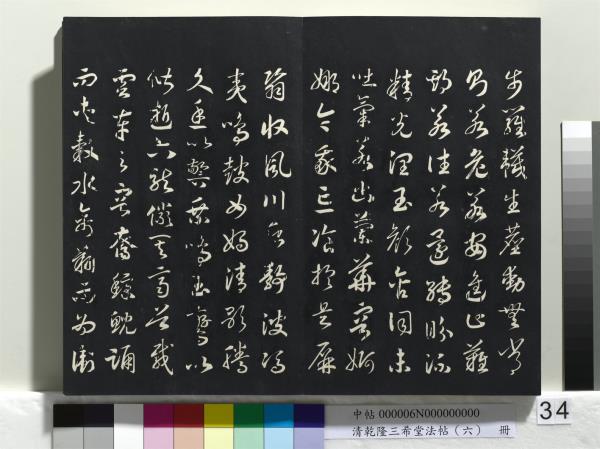 步羅韈生塵動無常
則若危若安進止難
期若往若還轉眄流
精光潤玉顏含詞未
吐氣若幽蘭華容婀
娜令我忘飡於是屏
翳收風川后靜波馮
夷鳴鼓女媧清歌騰
文魚以警乘鳴玉鸞以
偕逝六龍儼其齊首載
雲車之容裔鯨鯢踊
而夾轂水禽翔而為衛
中帖 000006N000000000
清乾隆三希堂法帖（六） 冊
34